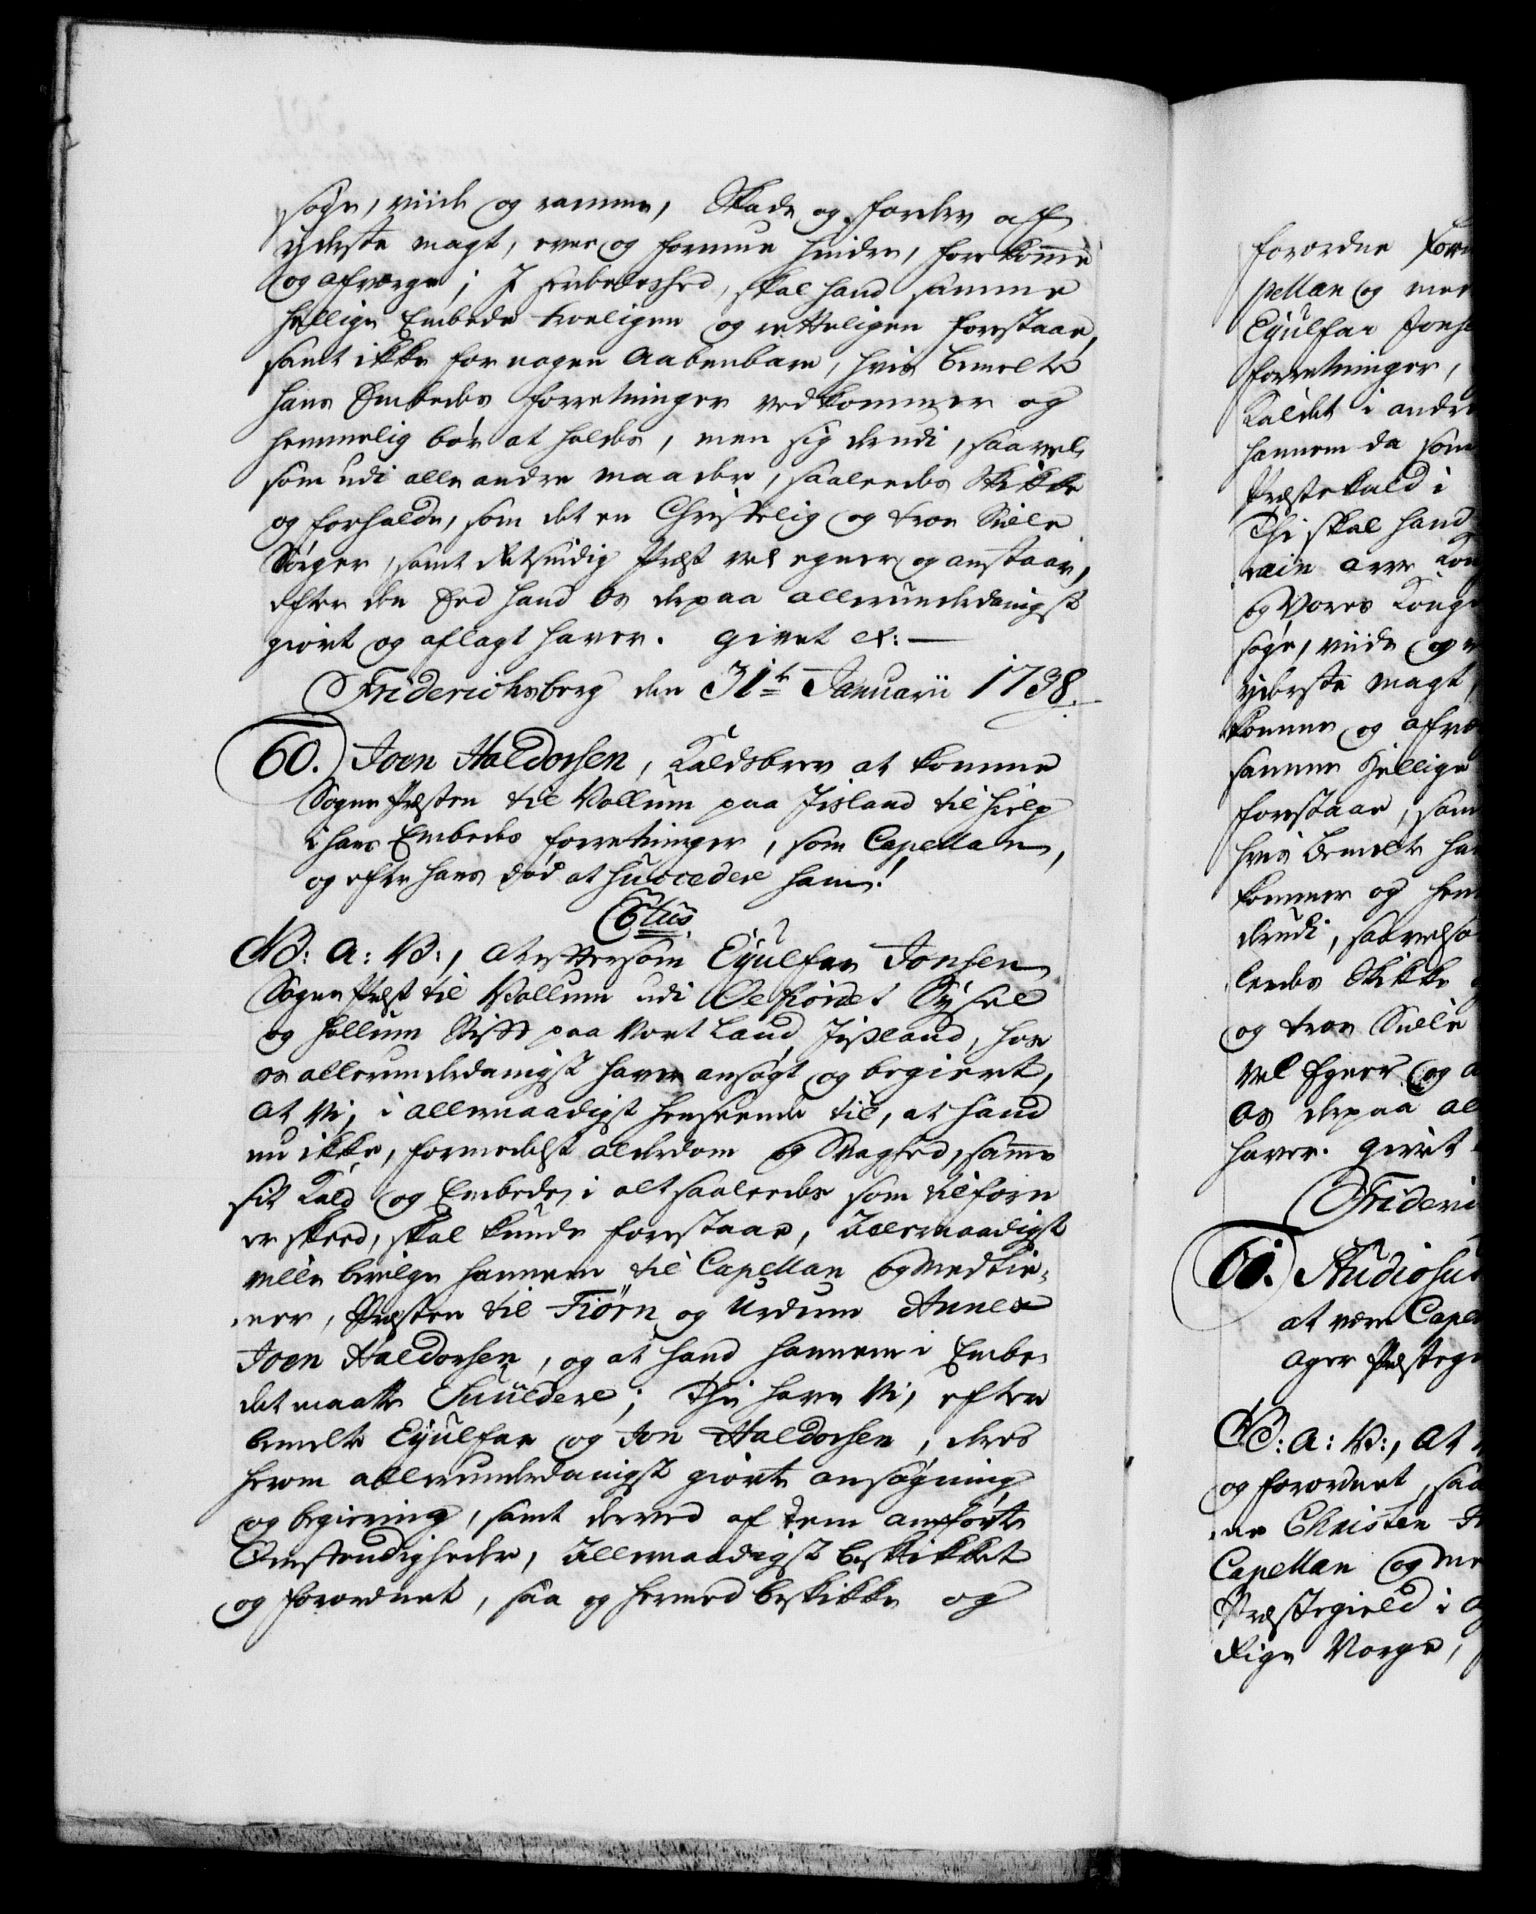 søge, viide og ramme, Skade og fordærv af
yderste magt, evne og formue hindre, forekomme
og afværge; I særdeeleshed, skal hand samme
hellige Embede troeligen og retteligen forestaae,
samt ikke for nogen Aabenbare, hvis bemelte
hans Embedes forretninger vedkommer og
hemmelig bør at holdes, men sig derudi, saavel
som udi alle andre maader, saaledes skikke
og forholde, som det en Christelig og troe Siæle
Sørger, samt retsindig Præst vel egner og anstaar,
efter den Eed hand Os derpaa allerunderdanigst
giort og aflagt haver. givet &c: —
Friderichsberg den 31te Januarii 1738.
60. Joen Haldorsen, Kaldsbrev at komme
Sogne Præsten til Vollum paa Jisland til hielp
i hans Embedes forretninger, som Capellan,
og efter hans død at Succedere ham!
C6tus.
V: A: V:, at eftersom Eyulfar Jonsen
Sogne Præst til Vollum udi Oefiords Syssel
og Hollum Stift paa Vort Land Jisland, hos
os allerunderdanigst haver ansøgt og begiert,
at Vi, i allernaadigst henseende til, at hand
nu ikke, formedelst alderdom og Svaghed, samme
sit Kald og Embede, i alt saaledes som tilforn
er skeed, skal kunde forestaae, Allernaadigst
ville bevilge hannem til Capellan og medtie-
ner, Præsten til Tiörn og Urdum Annex
Joen Haldorsen, og at hand hannem i Embe-
det maatte Succedere; Thi have Vi, efter
bemelte Eyulfar og Jon Haldorsen, deres
herom allerunderdanigst giorte ansøgning
og begiering, samt derved af dem anførte
Omstændigheder, Allernaadigst beskikket
og forordnet, saa og hermed beskikke og
forordne
pellan og med
Eyulfar Jons
forretninger,
Kaldet i andre
hannem da som
Præstekald i
Thi skal hand
rain arve Kon
og Vores Konge
søge, viide og
yderste magt,
komme og afvæ
samme Hellige
forestaae, sam
hvis bemelte han
kommer og hem
derudi, saavelso
ledes skikke
og troe Siæle
vel Egner og a
Os derpaa al
haver. givet
Frideri
61. Studiosu
at være Capel
ager Præstegi
V: A: V:, at
og forordnet, saa
ne Christen
Capellan og me
Præstegield i
Rige Norge,